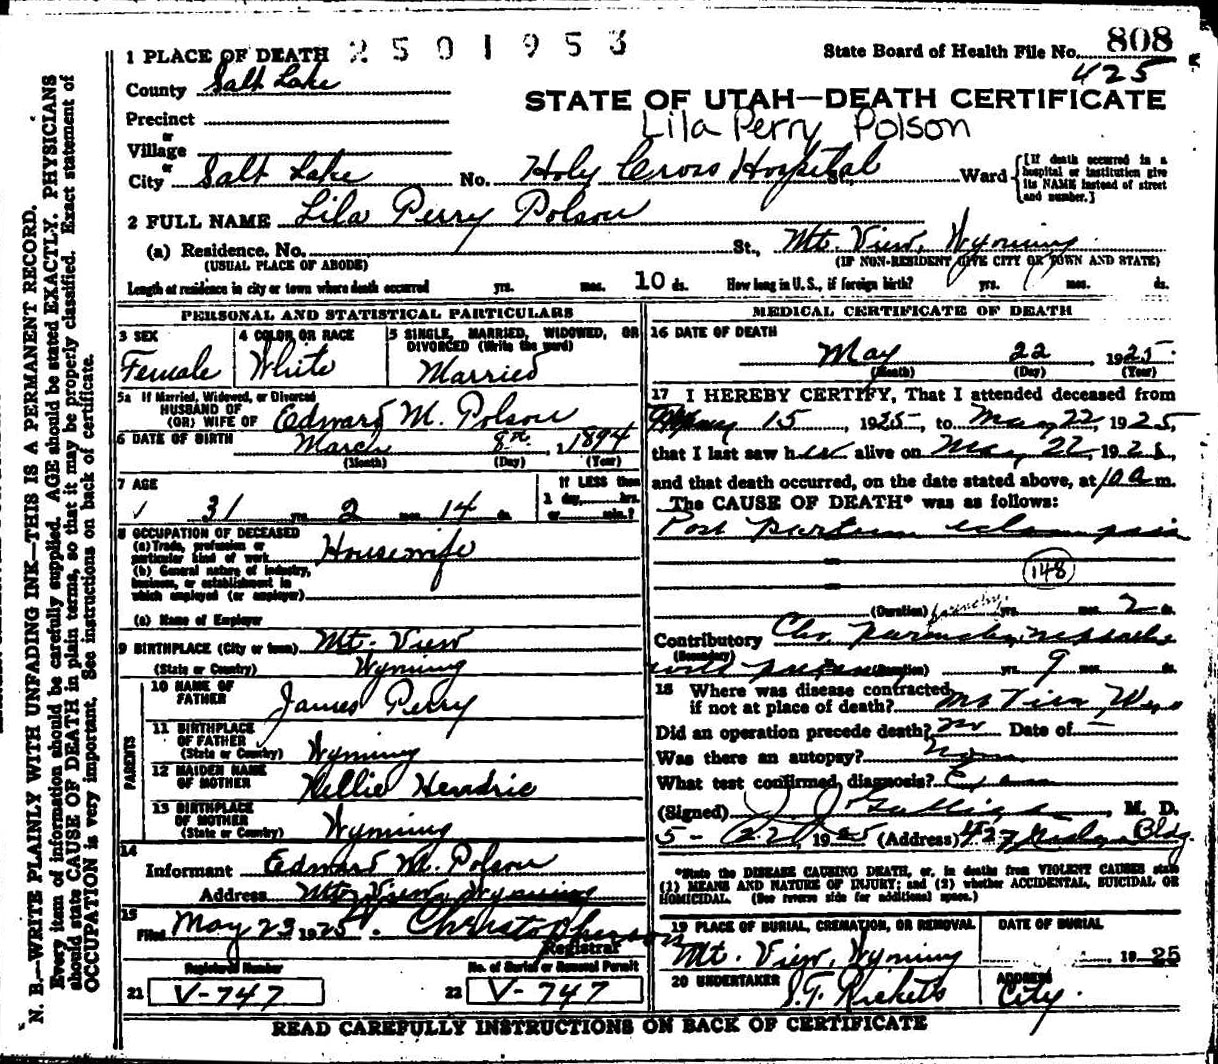 2501953
State Board of Health File No. 808
425
1 PLACE OF DEATH
County Salt Lake
STATE OF UTAH—DEATH CERTIFICATE
Precinct
Lila Perry Polson
or
Village
or
City Salt Lake No. Holy Cross Hospital St., Ward [If death occurred in a hospital or institution give its NAME instead of street and number.]
2 FULL NAME Lila Perry Polson
(a) Residence. No. St., Mt. View, Wyoming
(USUAL PLACE OF ABODE) (IF NON-RESIDENT GIVE CITY OR TOWN AND STATE)
Length of residence in city or town where death occurred yrs. mos. 10 ds. How long in U. S., if foreign birth? yrs. mos. ds.
PERSONAL AND STATISTICAL PARTICULARS
3 SEX Female
4 COLOR OR RACE White
5 SINGLE, MARRIED, WIDOWED, OR DIVORCED (Write the word) Married
5a If Married, Widowed, or Divorced
HUSBAND OF
(OR) WIFE OF Edward M. Polson
6 DATE OF BIRTH March 8th, 1894
(Month) (Day) (Year)
7 AGE 31 yrs. 2 mos. 14 ds.
If LESS than 1 day, hrs. or min.?
8 OCCUPATION OF DECEASED
(a) Trade, profession or particular kind of work Housewife
(b) General nature of industry, business, or establishment in which employed (or employer)
(c) Name of Employer
9 BIRTHPLACE (City or town) Mt. View
(State or Country) Wyoming
PARENTS
10 NAME OF FATHER James Perry
11 BIRTHPLACE OF FATHER (State or Country) Wyoming
12 MAIDEN NAME OF MOTHER Nellie Hendric
13 BIRTHPLACE OF MOTHER (State or Country) Wyoming
14
Informant Edward M. Polson
Address Mt. View, Wyoming
15
Filed May 23 1925.
Registrar
Registered Number
21 V-747
No. of Burial or Removal Permit
22 V-747
MEDICAL CERTIFICATE OF DEATH
16 DATE OF DEATH
May 22, 1925.
(Month) (Day) (Year)
17 I HEREBY CERTIFY, That I attended deceased from
15, 1925, to May 22, 1925,
that I last saw her alive on May 22, 1925,
and that death occurred, on the date stated above, at 10 a m.
The CAUSE OF DEATH* was as follows:
Post partum eclampsia
148
(Duration) yrs. mos. 2 ds.
Contributory Chr.
(Secondary) (Duration) yrs. 9 mos. ds.
18 Where was disease contracted
if not at place of death? Mt View, Wyo
Did an operation precede death? no Date of —
Was there an autopsy?
What test confirmed diagnosis?
(Signed) M. D.
5-22, 1925 (Address) 427 Bldg.
*State the DISEASE CAUSING DEATH, or, in deaths from VIOLENT CAUSES state
(1) MEANS AND NATURE OF INJURY; and (2) whether ACCIDENTAL, SUICIDAL OR
HOMICIDAL. (See reverse side for additional space.)
19 PLACE OF BURIAL, CREMATION, OR REMOVAL
Mt. View, Wyoming
DATE OF BURIAL
, 1925
20 UNDERTAKER S. T. Ricketts
ADDRESS City.
READ CAREFULLY INSTRUCTIONS ON BACK OF CERTIFICATE
N. B.—WRITE PLAINLY WITH UNFADING INK—THIS IS A PERMANENT RECORD.
Every item of information should be carefully supplied. AGE should be stated EXACTLY. PHYSICIANS
should state CAUSE OF DEATH in plain terms, so that it may be properly classified. Exact statement of
OCCUPATION is very important. See instructions on back of certificate.